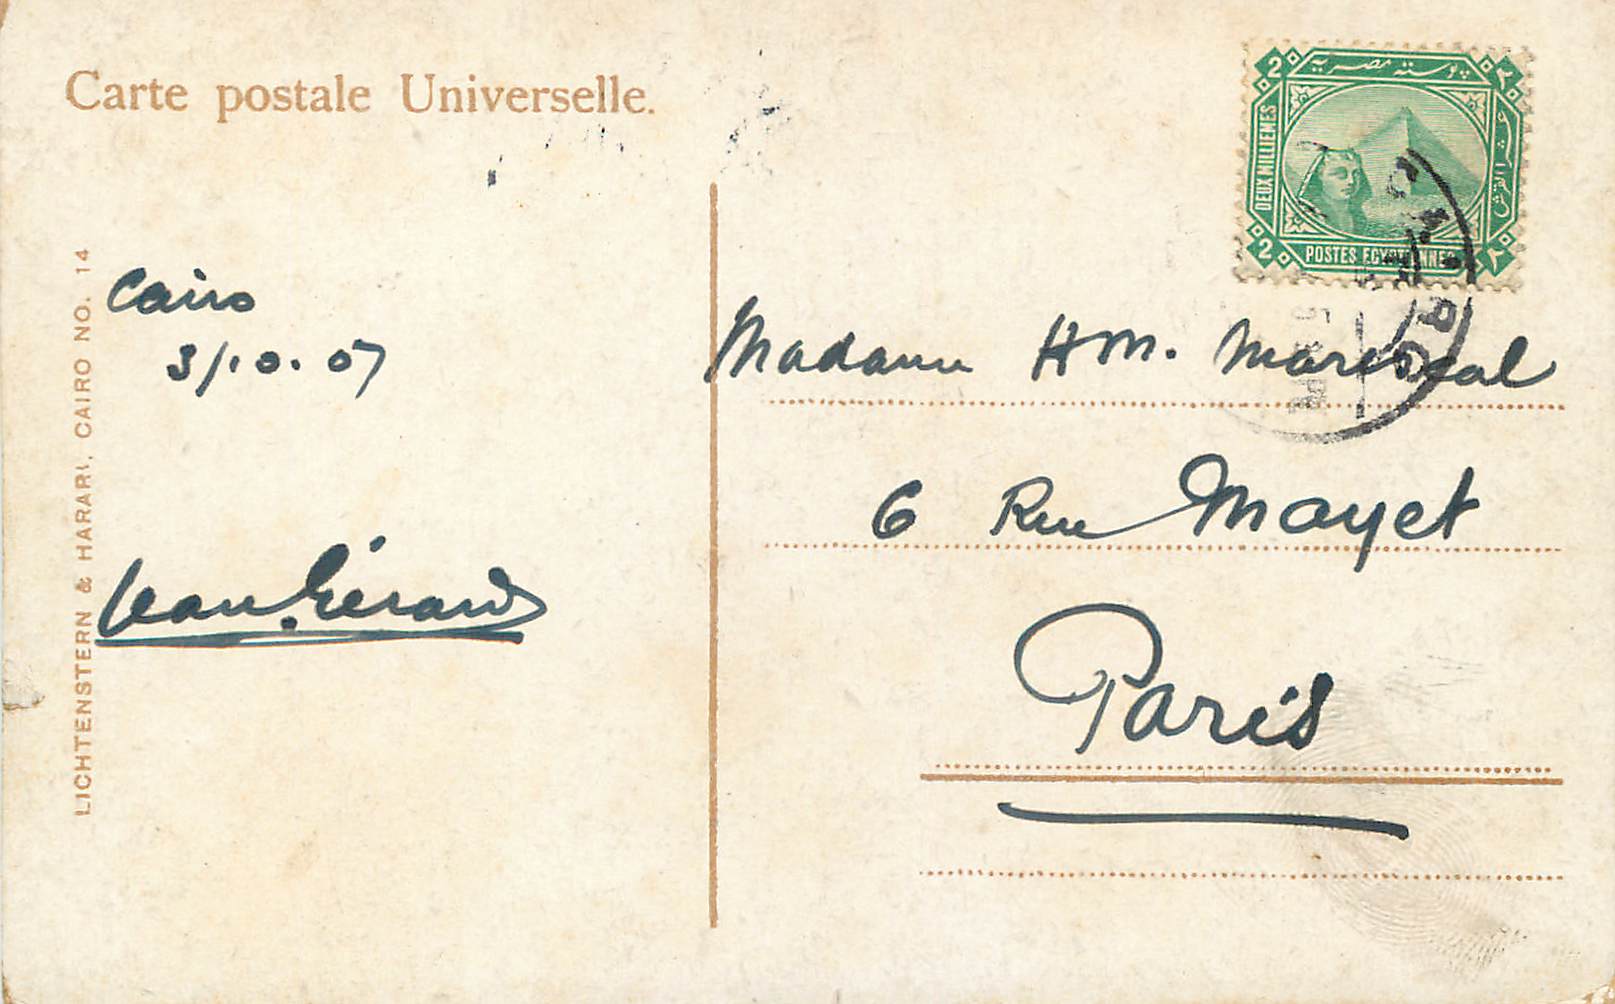 Carte postale Universelle.
LICHTENSTERN & HARARI, CAIRO NO. 14
Cairo
3/10.07
Jean Gérard
2 بوستة مصرية ٢
DEUX MILLIEMES
عشر القرش
2 POSTES EGYPTIENNES ٢
CAIRO
Madame HM. Marescal
6 Rue Mayet
Paris